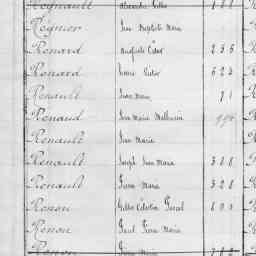 Regnault Alexandre Gilles
Régnier Jean Baptiste Marie
Renard Auguste Victor 256
Renard Louis Victor 523
Renault Jean Marie 91
Renaud Jean Marie Mathurin 996
Renault Jean Marie
Renault Joseph Jean Marie 388
Renault Pierre Marie 328
Renou Gilles Célestin Pascal
Renou Paul Jean Marie
Renon Pierre Marie